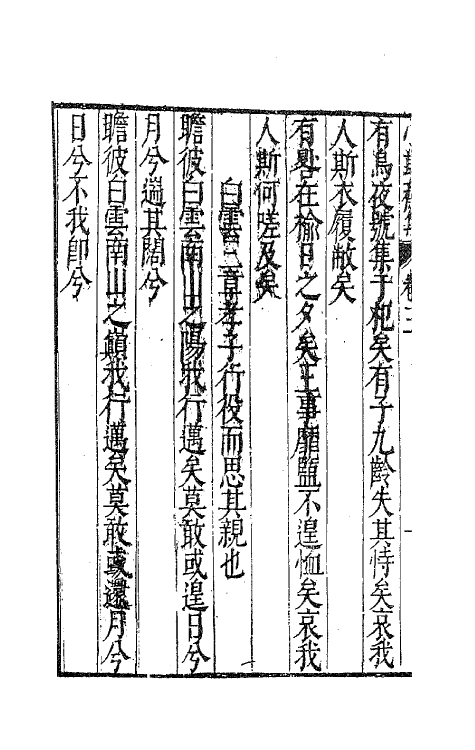 有鳥夜號集于杞矣有子九齡失其恃矣哀我
人斯衣履敝矣
有晷在榆日之夕矣王事靡盬不遑恤矣哀我
人斯何嗟及矣
白雲二章孝子行役而思其親也
瞻彼白雲南山之陽我行邁矣莫敢或遑日兮
月兮遄其闊兮
瞻彼白雲南山之巔我行邁矣莫敢或還月兮
日兮不我卽兮